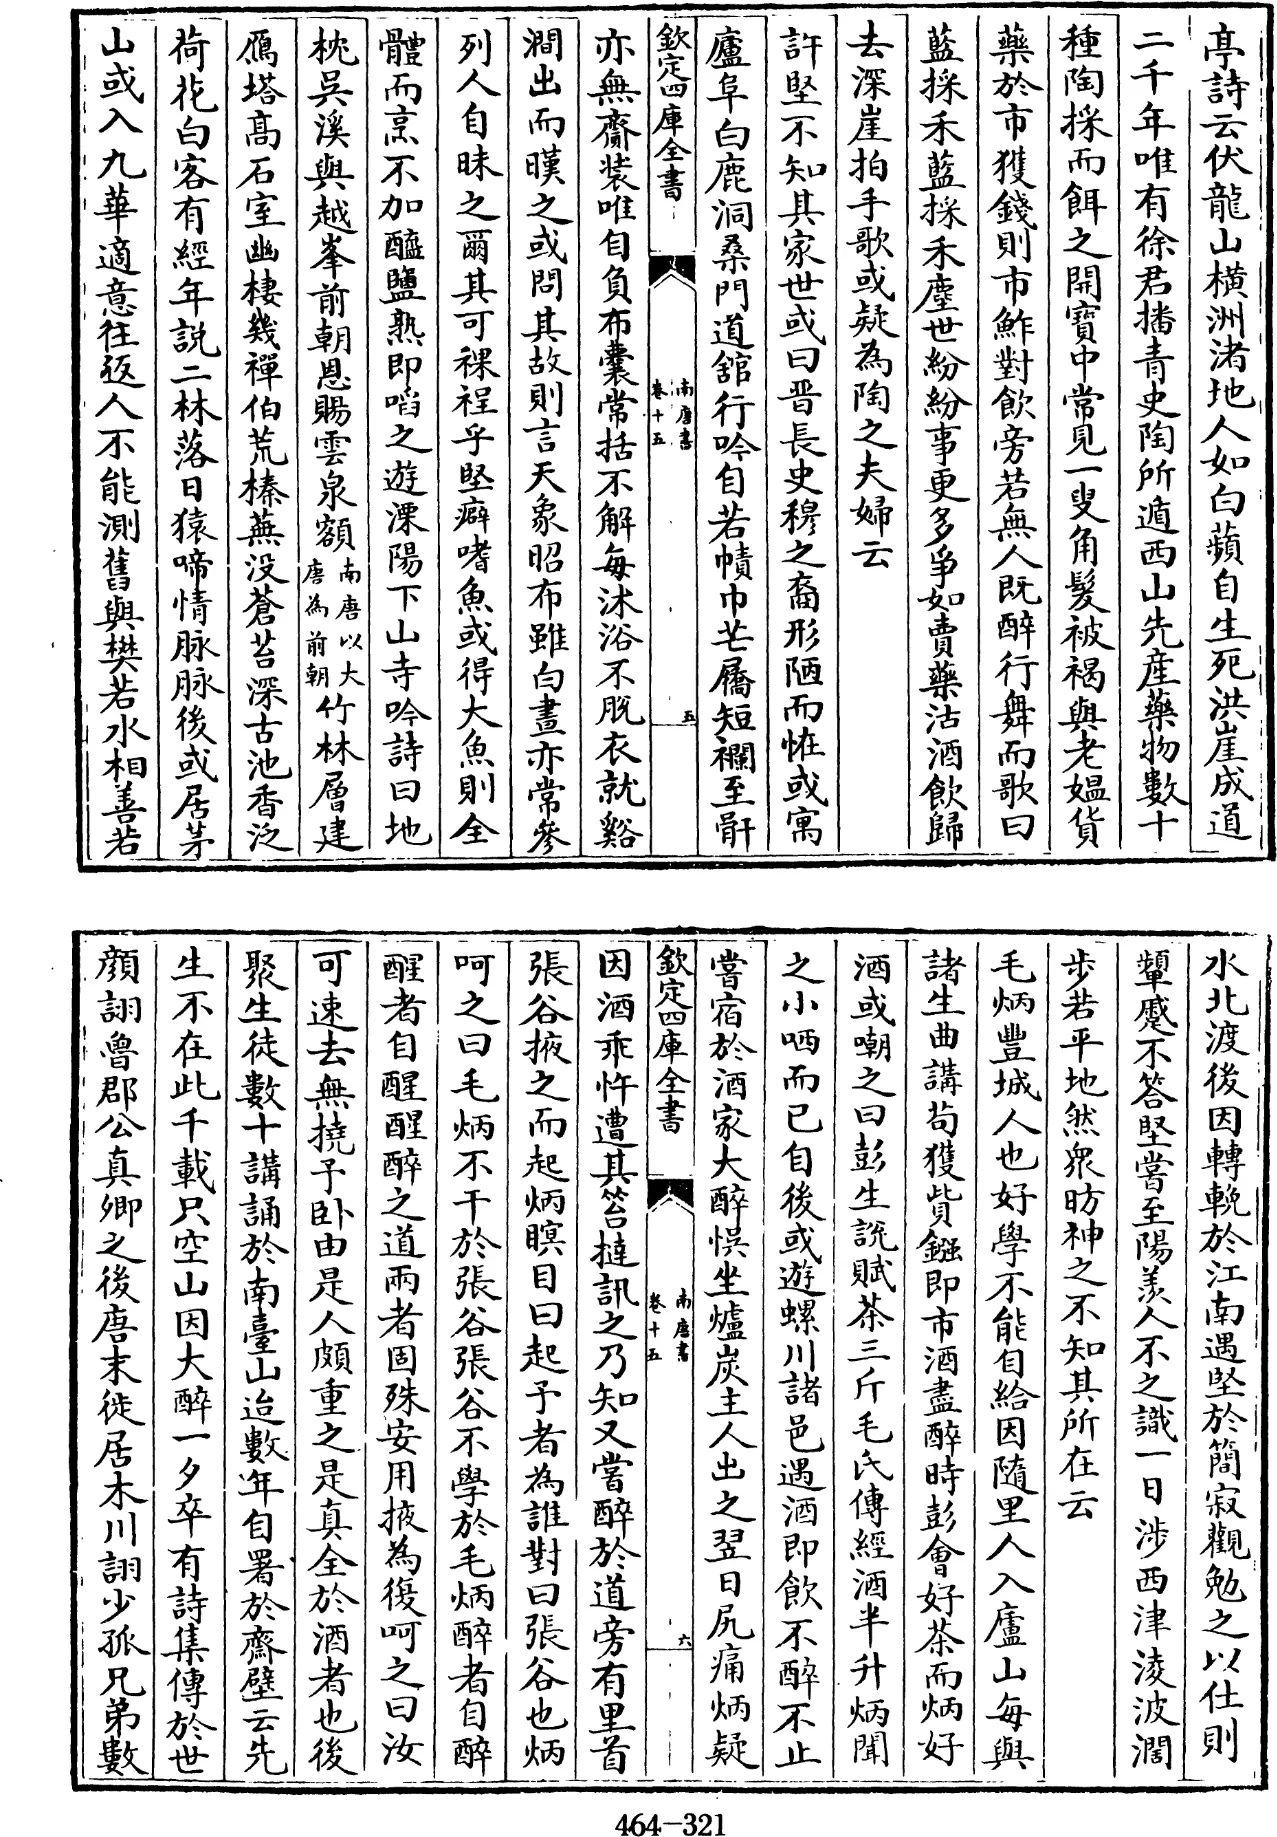 亭詩云伏龍山橫洲渚地人如白蘋自生死洪崖成道
二千年唯有徐君播青史陶所遁西山先産藥物數十
種陶採而餌之開寶中常見一叟角髮被褐與老媼貨
藥於市獲錢則市鮓對飲旁若無人既醉行舞而歌曰
藍採禾藍採禾塵世紛紛事更多爭如賣藥沽酒飲歸
去深崖拍手歌或疑為陶之夫婦云
許堅不知其家世或曰晉長史穆之裔形陋而怪或寓
廬阜白鹿洞桑門道舘行吟自若幘巾芒屩短襴至骭
欽定四庫全書
南唐書
卷十五
五
亦無齋裝唯自負布囊常括不解每沐浴不脫衣就谿
澗出而暵之或問其故則言天象昭布雖白晝亦常參
列人自昧之爾其可裸裎乎堅癖嗜魚或得大魚則全
體而烹不加醯鹽熟即啗之遊溧陽下山寺吟詩曰地
枕吳溪與越峯前朝恩賜雲泉額南唐以大唐為前朝竹林層建
鴈塔高石室幽棲幾禪伯荒榛蕪没蒼苔深古池香泛
荷花白客有經年説二林落日猿啼情脉脉後或居茅
山或入九華適意往返人不能測舊與樊若水相善若
水北渡後因轉輓於江南遇堅於簡寂觀勉之以仕則
顰蹙不答堅嘗至陽羨人不之識一日涉西津淩波濶
步若平地然衆昉神之不知其所在云
毛炳豐城人也好學不能自給因隨里人入廬山每與
諸生曲講苟獲貲鏹即市酒盡醉時彭會好茶而炳好
酒或嘲之曰彭生説賦茶三斤毛氏傳經酒半升炳聞
之小哂而已自後或遊螺川諸邑遇酒即飲不醉不止
嘗宿於酒家大醉悞坐爐炭主人出之翌日尻痛炳疑
欽定四庫全書
南唐書
卷十五
六
因酒乖忤遭其笞撻訊之乃知又嘗醉於道旁有里首
張谷掖之而起炳瞑目曰起予者為誰對曰張谷也炳
呵之曰毛炳不干於張谷張谷不學於毛炳醉者自醉
醒者自醒醒醉之道兩者固殊安用掖為復呵之曰汝
可速去無撓予卧由是人頗重之是真全於酒者也後
聚生徒數十講誦於南臺山迨數年自署於齋壁云先
生不在此千載只空山因大醉一夕卒有詩集傳於世
顔詡魯郡公真卿之後唐末徙居木川詡少孤兄弟數
464-321